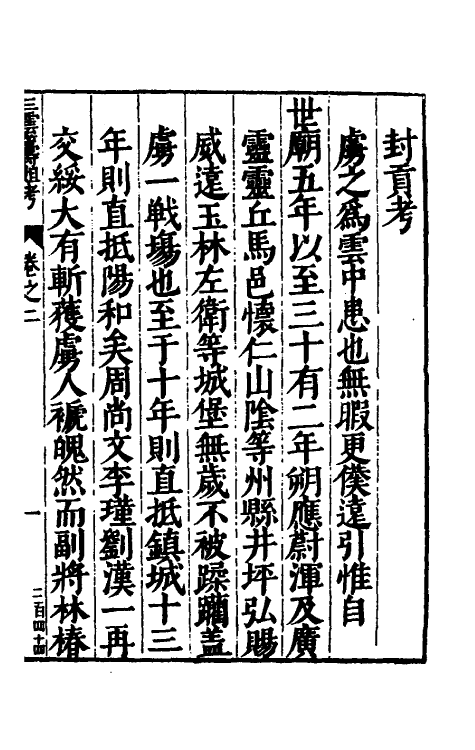 封貢考
虜之爲雲中患也無暇更僕遠引惟自
世廟五年以至三十有二年朔應蔚渾及廣
靈靈丘馬邑懷仁山隂等州縣井坪弘賜
威遠玉林左衛等城堡無歲不被蹂躪蓋
虜一戰塲也至于十年則直抵鎮城十三
年則直抵陽和矣周尚文李瑾劉漢一再
交綏大有斬獲虜人褫魄然而副將林椿
三雲籌俎考
卷之二
一
二百四十四